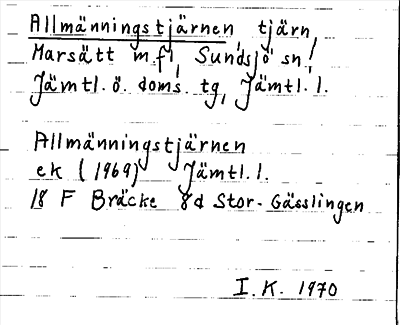 Allmänningstjärnen, tjärn,
Marsätt m.fl, Sundsjö sn,
Jämtl.ö. doms. tg, Jämtl.l.
Allmänningstjärnen
ek (1969) Jämtl.l.
18 F Bräcke 8d Stor-Gässlingen
I.K. 1970